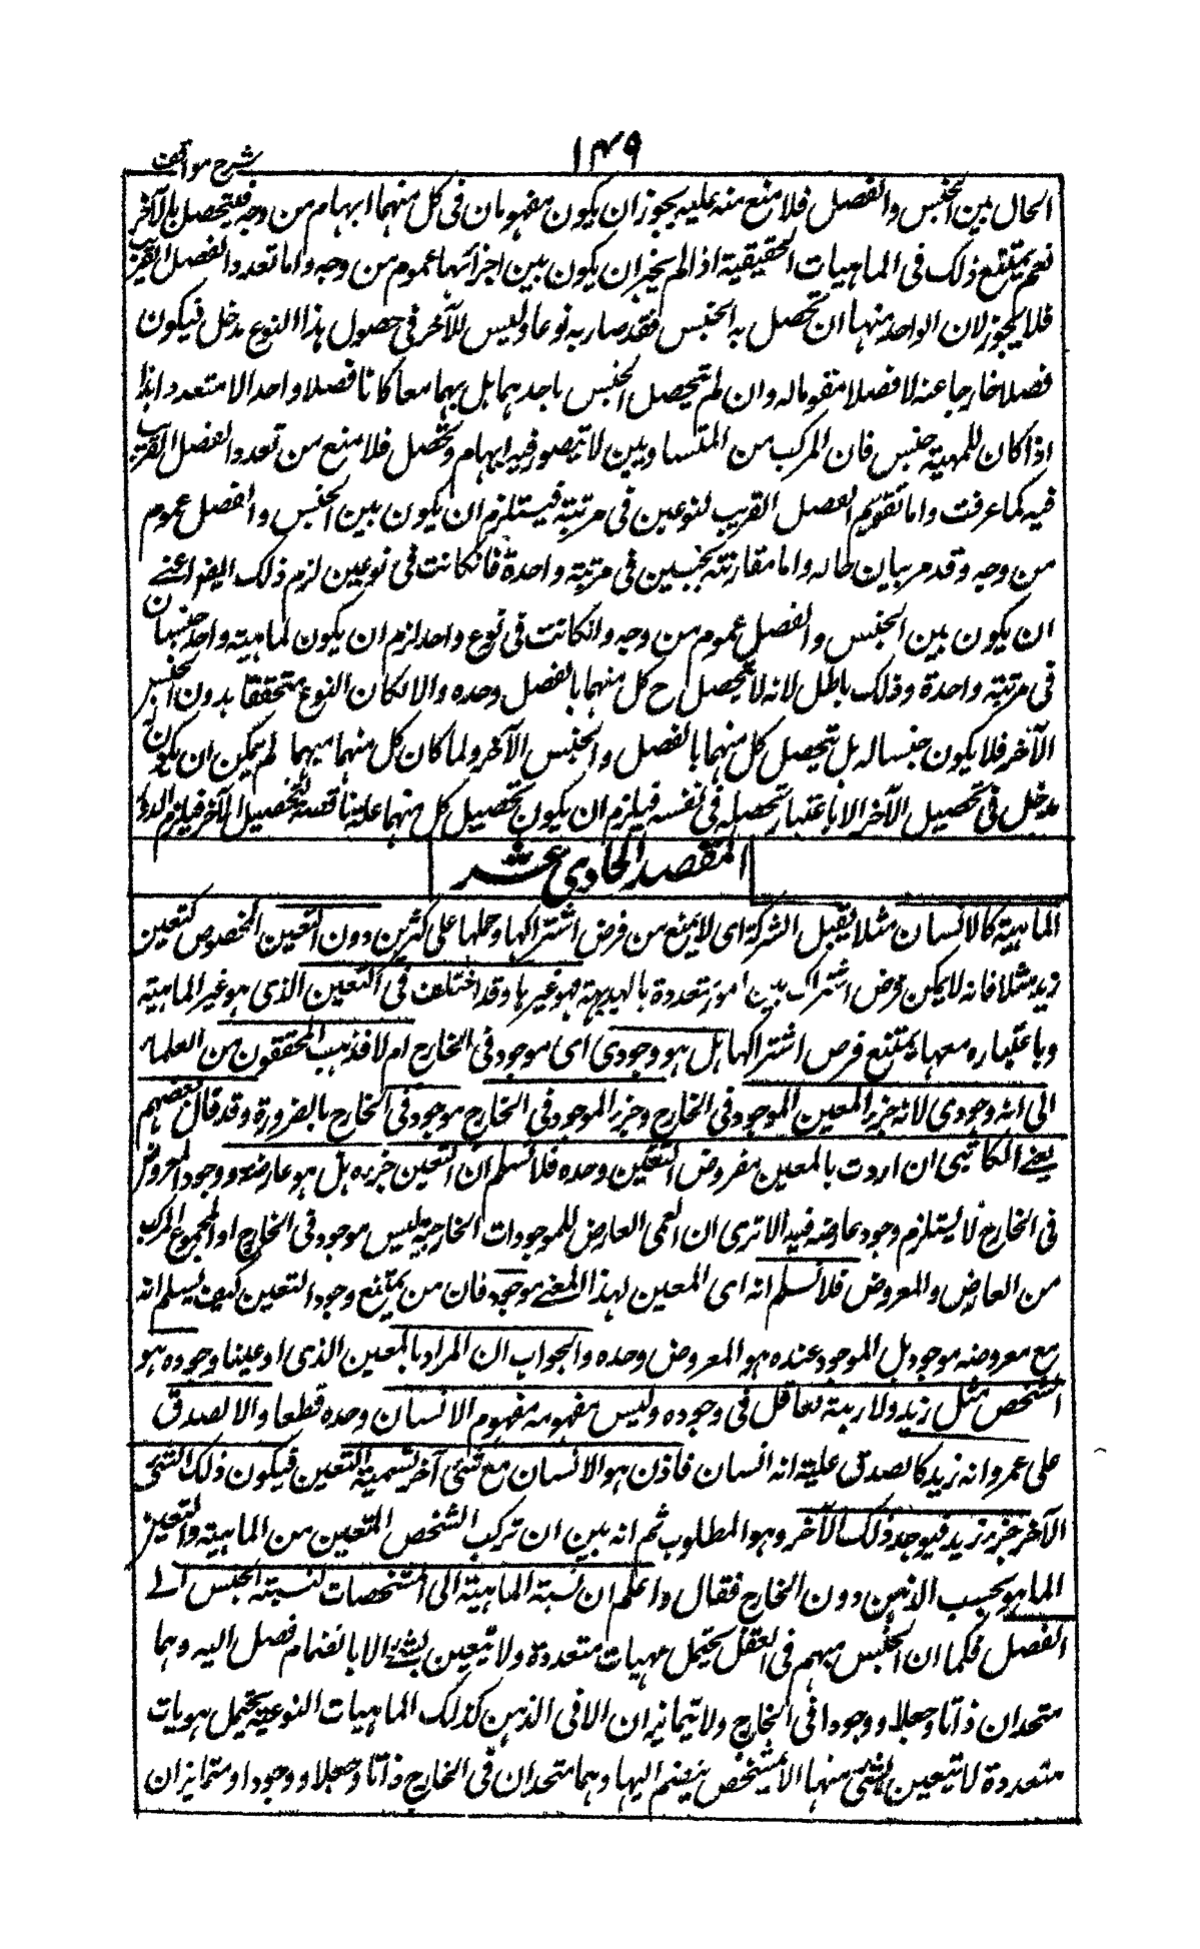 ١٤٩
شرح مواقف
الحال بين الجنس والفصل فلا منع منه عليه يجوز ان يكون مفهومان فى كل منهما ابهام من وجه فيتحصل بالآخر
نعم يمتنع ذلك فى الماهيات الحقيقية اذ لم يجز ان يكون بين اجزائها عموم من وجه واما تعدد الفصل القريب
فلا يجوز لان الواحد منها ان تحصل به الجنس فقد صار به نوعا وليس للآخر فى حصول هذا النوع مدخل فيكون
فصلا خارجا عنه لا فصلا مقوما له وان لم يتحصل الجنس باحدهما بل بهما معا كانا فصلا واحدا لا متعددا هذا
اذا كان للمهية جنس فان المركب من المتساويين لا يتصور فيه ابهام وتحصل فلا منع من تعدد الفصل القريب
فيه كما عرفت واما تقويم الفصل القريب لنوعين فى مرتبة فيستلزم ان يكون بين الجنس والفصل عموم
من وجه وقد مر بيان حاله واما مقارنته بجنسين فى مرتبة واحدة فانكانت فى نوعين لزم ذلك ايضا اعنے
ان يكون بين الجنس والفصل عموم من وجه وانكانت فى نوع واحد لزم ان يكون لماهية واحدة جنسان
فى مرتبة واحدة وذلك باطل لانه لا يتحصل ح كل منهما بالفصل وحده والا لكان النوع متحققا بدون الجنس
الآخر فلا يكون جنسا له بل يتحصل كل منهما بالفصل والجنس الآخر ولما كان كل منهما مبهما لم يمكن ان يكون
مدخل فى تحصيل الآخر الا باعتبار تحصله فى نفسه فيلزم ان يكون تحصيل كل منهما علة ناقصة لتحصيل الآخر فيلزم الدور
المقصد الحادى عشر
الماهية كالانسان مثلا يقبل الشركة اى لا يمنع من فرض اشتراكها وحملها على كثيرين دون التعين المخصوص كتعين
زيد مثلا فانه لا يمكن فرض اشتراك بين امور متعددة بالبديهة فهو غيرها وقد اختلف فى التعين الذى هو غير الماهية
وباعتباره معها يمتنع فرض اشتراكها هل هو وجودى اى موجود فى الخارج ام لا فذهب المحققون من العلماء
الى انه وجودى لانه جزء المعين الموجود فى الخارج وجزء الموجود فى الخارج موجود فى الخارج بالضرورة وقد قال بعضهم
يعنے الكاتبى ان اردت بالمعين مفروض التعين وحده فلا نسلم ان التعين جزءه بل هو عارضه ووجود المعروض
فى الخارج لا يستلزم وجود عارضه فيه الا ترى ان العمى العارض للموجودات الخارجية ليس موجود فى الخارج او المجموع المركب
من العارض والمعروض فلا نسلم انه اى المعين لهذا المعنے موجود فان من يمتنع وجود التعين كيف يسلم انه
مع معروضه موجود بل الموجود عنده هو المعروض وحده والجواب ان المراد بالمعين الذى ادعينا وجوده هو
الشخص مثل زيد ولا ريبة لعاقل فى وجوده وليس مفهومه مفهوم الانسان وحده قطعا والا لصدق
على عمرو انه زيد كما يصدق عليه انه انسان فاذن هو الانسان مع شئ آخر نسميه التعين فيكون ذلك الشئ
الآخر جزء زيد فيوجد ذلك الآخر وهو المطلوب ثم انه بين ان تركب الشخص المتعين من الماهية والتعين
انما هو بحسب الذهن دون الخارج فقال واعلم ان نسبة الماهية الى المشخصات كنسبة الجنس الے
الفصل فكما ان الجنس مبهم فى العقل يحتمل مهيات متعددة ولا يتعين لشئ الا بانضمام فصل اليه وهما
متحدان ذاتا وجعلا ووجودا فى الخارج ولا يتمايزان الا فى الذهن كذلك الماهيات النوعية يحتمل هويات
متعددة لا يتعين لشئ منها الا بمشخص ينضم اليها وهما متحدان فى الخارج ذاتا وجعلا ووجودا ومتمايزان